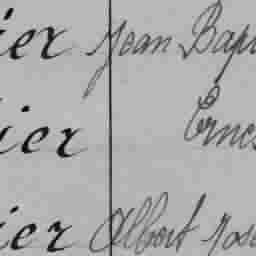 ier Jean Bap
ier Ernes
ier Albert Jos